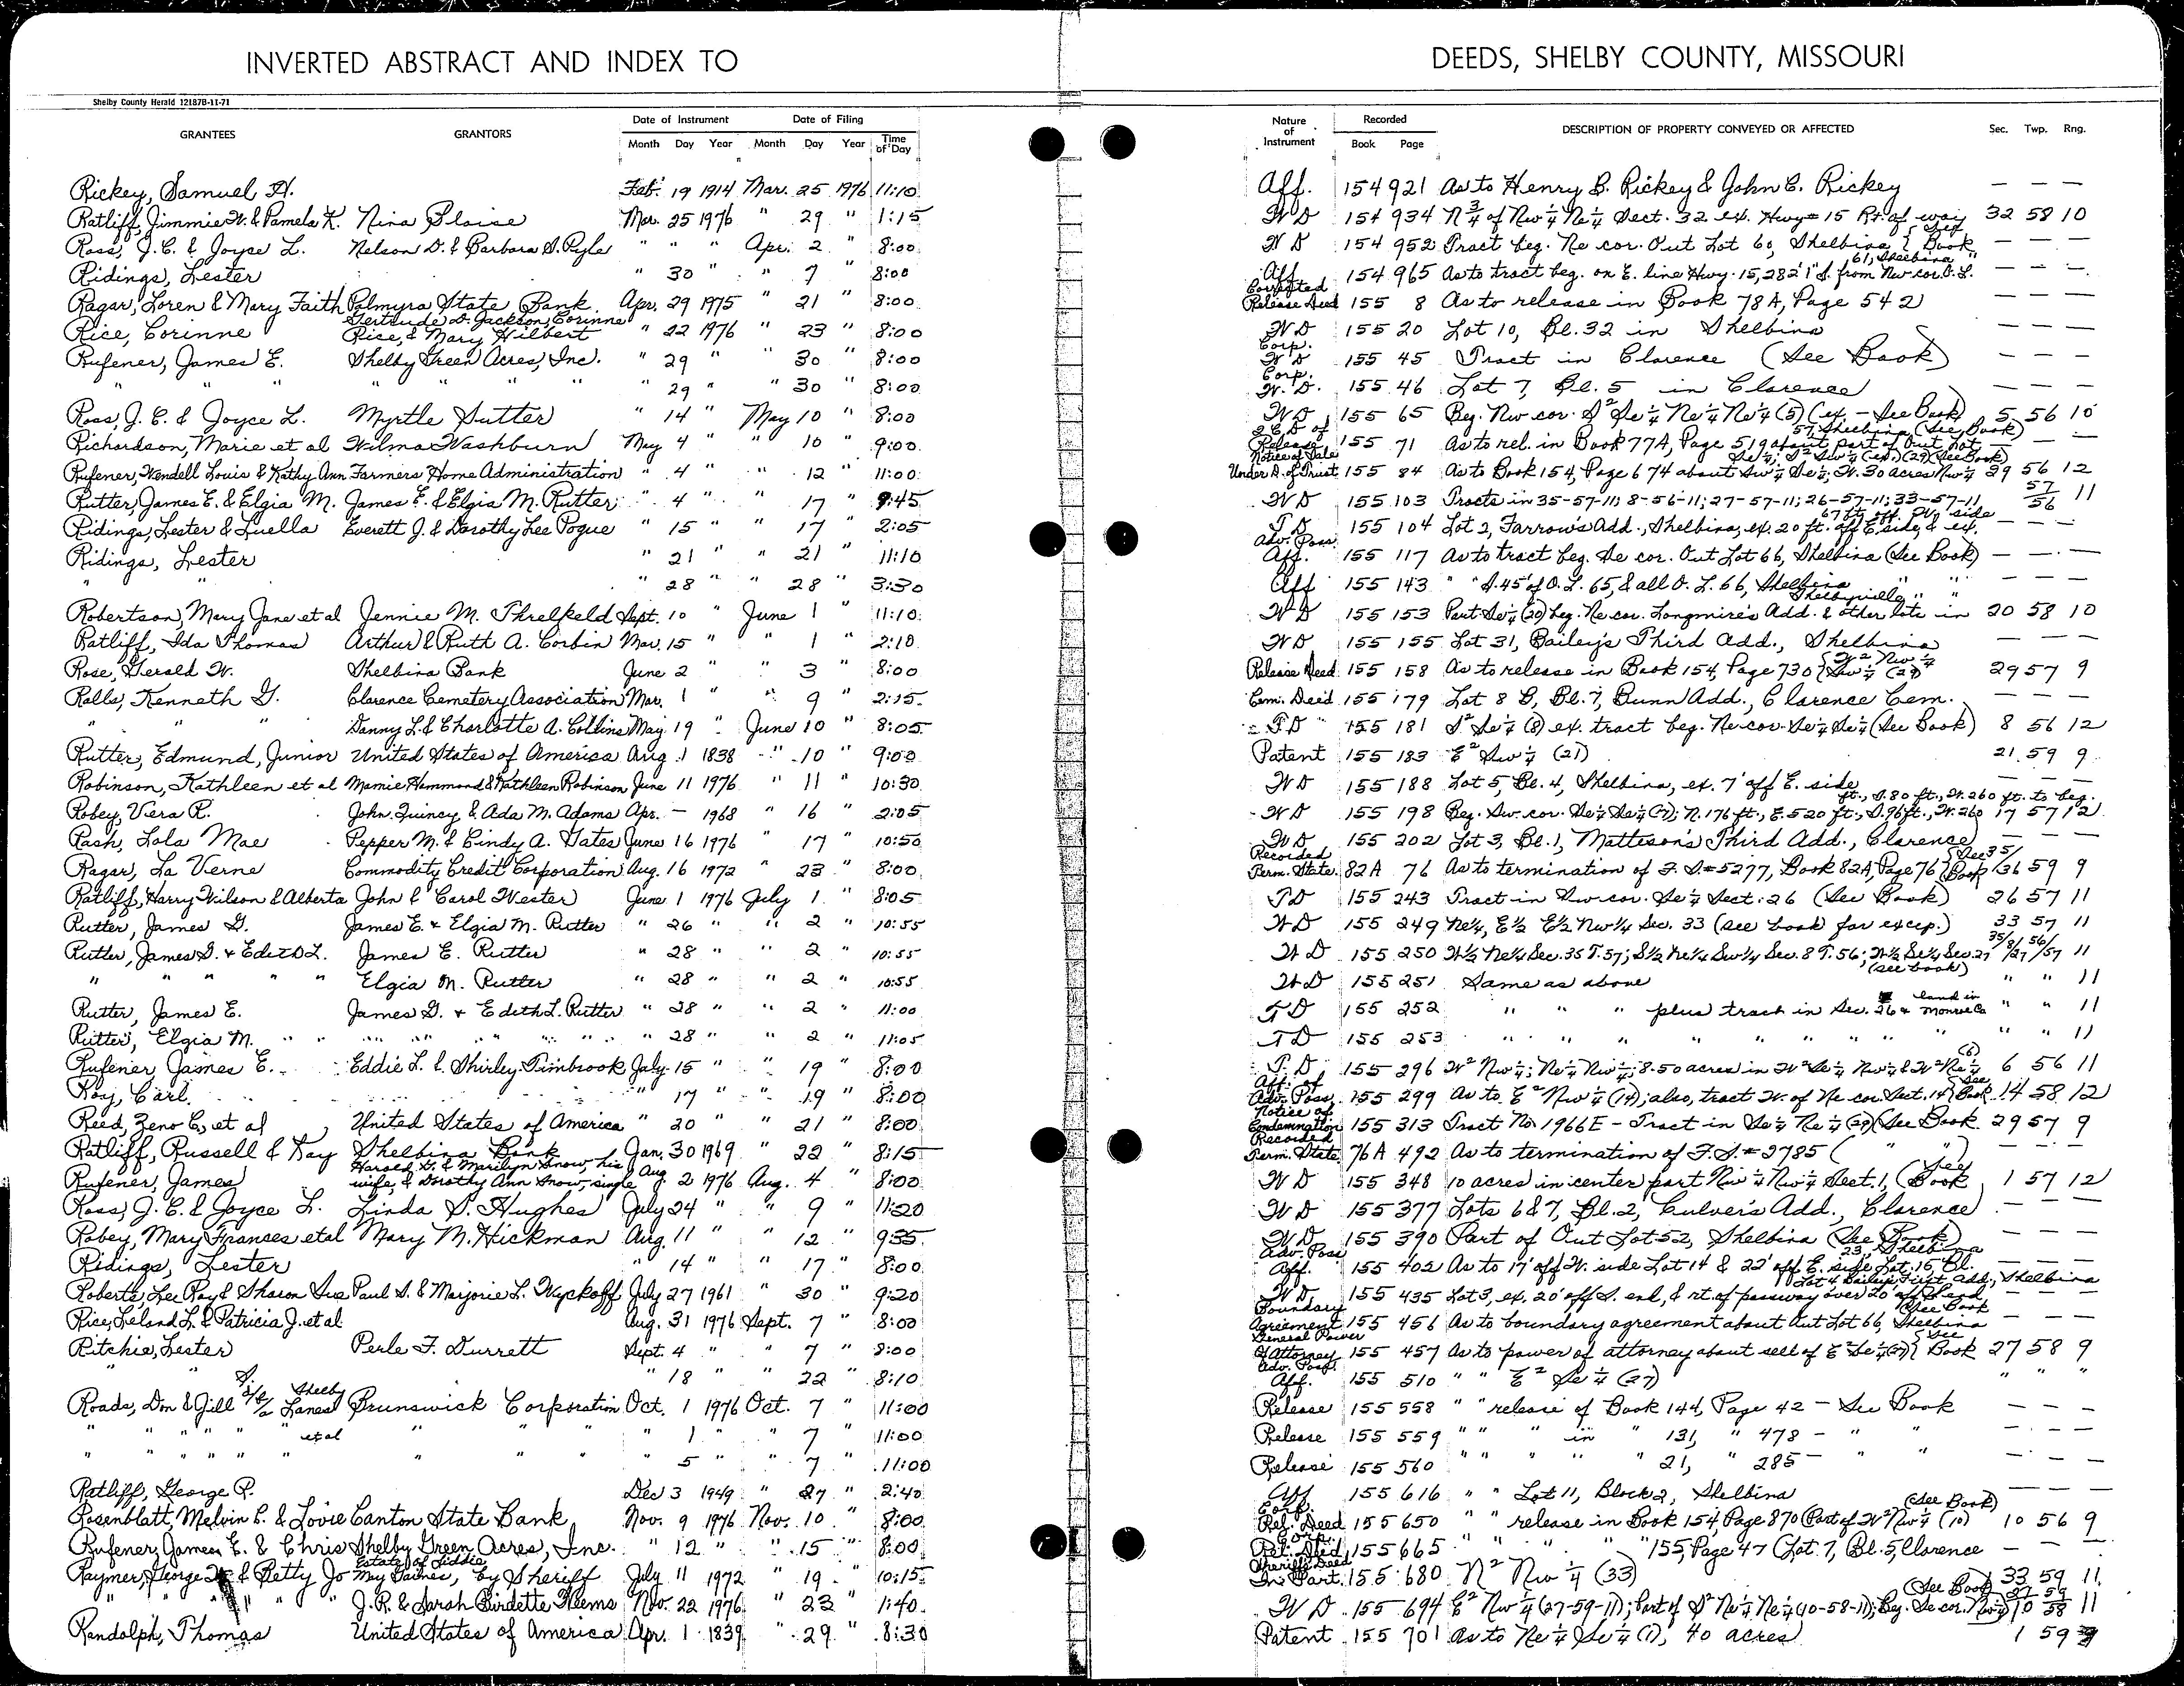 INVERTED ABSTRACT AND INDEX TO DEEDS, SHELBY COUNTY, MISSOURI
Shelby County Herald 12187B-11-71
GRANTEES GRANTORS Date of Instrument Date of Filing Nature of Instrument Recorded DESCRIPTION OF PROPERTY CONVEYED OR AFFECTED Sec. Twp. Rng.
Month Day Year Month Day Year Time of Day Book Page
Rickey, Samuel H. Feb. 19 1914 Mar. 25 1976 11:10 Aff. 154 921 As to Henry B. Rickey & John C. Rickey — — —
Ratliff, Jimmie W. & Pamela K. Nina Blaise Mar. 25 1976 " 29 " 1:15 W D 154 934 N 3/4 of Nw 1/4 Ne 1/4 Sect. 32 ex. Hwy # 15 Rt. of way 32 58 10
Ross, J.C. & Joyce L. Nelson D. & Barbara S. Pyle " " " Apr. 2 " 8:00 W D 154 952 Tract beg. Ne cor. Out Lot 60, Shelbina { See Book — — —
Ridings, Lester " 30 " " 7 " 8:00 Aff. 154 965 As to tract beg. on E. line Hwy. 15, 282' 1" S. from Nw cor. O.L. 61, Shelbina " — — —
Ragar, Loren & Mary Faith Palmyra State Bank Apr. 29 1975 " 21 " 8:00 Corrected Release Deed 155 8 As to release in Book 78A, Page 542 — — —
Rice, Corinne Gertrude D. Jackson, Corinne Rice, & Mary Hilbert " 22 1976 " 23 " 8:00 W D 155 20 Lot 10, Bl. 32 in Shelbina — — —
Rufener, James E. Shelby Green Acres, Inc. " 29 " " 30 " 8:00 Corp. W D 155 45 Tract in Clarence (See Book) — — —
" " " " " " " 29 " " 30 " 8:00 Corp. W. D. 155 46 Lot 7, Bl. 5 in Clarence — — —
Ross, J. C. & Joyce L. Myrtle Sutter " 14 " May 10 " 8:00 W D 155 65 Beg. Nw cor. S² Se 1/4 Ne 1/4 Ne 1/4 (5) (ex. — See Book) 5 56 10
Richardson, Marie et al Wilma Washburn May 4 " " 10 " 9:00 Release 155 71 As to rel. in Book 77A, Page 519 about part of Out Lot 57, Shelbina (See Book) — — —
Rufener, Wendell Louis & Kathy Ann Farmers Home Administration " 4 " " 12 " 11:00 Notice of Sale Under D. of Trust 155 84 As to Book 154, Page 674 about Sw 1/4 Se 1/4; W. 30 acres Nw 1/4 Se 1/4; S² Sw 1/4 (ex.) (29) (See Book) 29 56 12
Rutter, James E. & Elgia M. James E. & Elgia M. Rutter " 4 " " 17 " 9:45 W D 155 103 Tracts in 35-57-11; 8-56-11; 27-57-11; 26-57-11; 33-57-11 57/56 11
Ridings, Lester & Luella Everett J. & Dorothy Lee Pogue " 15 " " 17 " 2:05 T D 155 104 Lot 2, Farrow's Add., Shelbina, ex. 20 ft. off E. side, & ex. 67 ft. off W. side — — —
Ridings, Lester " 21 " " 21 " 11:10 Adv. Poss. Aff. 155 117 As to tract beg. Se cor. Out Lot 66, Shelbina (See Book) — — —
" " " 28 " " 28 " 3:30 Aff 155 143 " " S. 45' of O. L. 65, & all O. L. 66, Shelbina " " — — —
Robertson, Mary Jane et al Jennie M. Threlkeld Sept. 10 " June 1 " 11:10 W D 155 153 Part Se 1/4 (20) beg. Ne cor. Longmire's Add. & other lots in Shelbyville " " 20 58 10
Ratliff, Ida Thomas Arthur & Ruth A. Corbin Mar. 15 " " 1 " 2:10 W D 155 155 Lot 31, Bailey's Third Add., Shelbina — — —
Rose, Gerald W. Shelbina Bank June 2 " " 3 " 8:00 Release Deed 155 158 As to release in Book 154, Page 730 { W² Nw 1/4 Sw 1/4 (29) 29 57 9
Ralls, Kenneth G. Clarence Cemetery Association Mar. 1 " " 9 " 2:15 Cem. Deed 155 179 Lot 8 B, Bl. 7, Dunn Add., Clarence Cem. — — —
" " " Danny L. & Charlotte A. Collins May 19 " June 10 " 8:05 T D 155 181 S² Se 1/4 (8) ex. tract beg. Ne cor. Se 1/4 Se 1/4 (See Book) 8 56 12
Rutter, Edmund, Junior United States of America Aug. 1 1838 " 10 " 9:00 Patent 155 183 E² Sw 1/4 (21) 21 59 9
Robinson, Kathleen et al Mamie Hammond & Kathleen Robinson June 11 1976 " 11 " 10:30 W D 155 188 Lot 5, Bl. 4, Shelbina, ex. 7' off E. side — — —
Robey, Vera R. John Quincy & Ada M. Adams Apr. — 1968 " 16 " 2:05 W D 155 198 Beg. Sw. cor. Se 1/4 Se 1/4 (7); N. 176 ft., E. 520 ft., S. 96 ft., W. 260 ft., S. 80 ft., W. 260 ft. to beg. 17 57 12
Rash, Lola Mae Pepper M. & Cindy A. Gates June 16 1976 " 17 " 10:50 W D 155 202 Lot 3, Bl. 1, Matteson's Third Add., Clarence — — —
Ragar, La Verne Commodity Credit Corporation Aug. 16 1972 " 23 " 8:00 Recorded Term. State. 82A 76 As to termination of F. S. # 5277, Book 82A, Page 76 { See Book 35/36 59 9
Ratliff, Harry Wilson & Alberta John & Carol Wester June 1 1976 July 1 " 8:05 T D 155 243 Tract in Sw cor. Se 1/4 Sect. 26 (See Book) 26 57 11
Rutter, James G. James E. & Elgia M. Rutter " 26 " " 2 " 10:55 W D 155 249 Ne 1/4, E 1/2 E 1/2 Nw 1/4 Sec. 33 (see book for excep.) 33 57 11
Rutter, James G. & Edith L. James E. Rutter " 28 " " 2 " 10:55 W D 155 250 W 1/2 Ne 1/4 Sec. 35 T. 57; S 1/2 Ne 1/4 Sw 1/4 Sec. 8 T. 56; W 1/2 Se 1/4 Sec. 27 (see book) 35/8/27 56/57 11
" " " " Elgia M. Rutter " 28 " " 2 " 10:55 W D 155 251 Same as above " " 11
Rutter, James E. James G. & Edith L. Rutter " 28 " " 2 " 11:00 T D 155 252 " " " plus tract in Sec. 26 & land in Monroe Co " " 11
Rutter, Elgia M. " " " " " " 28 " " 2 " 11:05 T D 155 253 " " " " " " " " " " 11
Rufener James E. Eddie L. & Shirley Timbrook July 15 " " 19 " 8:00 T. D 155 296 W² Nw 1/4; Ne 1/4 Nw 1/4; 8.50 acres in W² Se 1/4 Nw 1/4 & W² Ne 1/4 (6) 6 56 11
Roy, Carl " 17 " " 19 " 8:00 Aff. of Adv. Poss. 155 299 As to E² Nw 1/4 (14); also, tract W. of Ne cor. Sect. 14 { See Book 14 58 12
Reed, Zeno C., et al United States of America " 20 " " 21 " 8:00 Notice of Condemnation 155 313 Tract No. 1966E — Tract in Se 1/4 Ne 1/4 (29) (See Book 29 57 9
Ratliff, Russell & Kay Shelbina Bank Jan. 30 1969 " 22 " 8:15 Recorded Term. State. 76A 492 As to termination of F. S. # 2785 ( " " ) — — —
Rufener, James Harold G. & Marilyn Snow, his wife, & Dorothy Ann Snow, single Aug. 2 1976 Aug. 4 " 8:00 W D 155 348 10 acres in center part Nw 1/4 Nw 1/4 Sect. 1, (See Book 1 57 12
Ross, J. C. & Joyce L. Linda S. Hughes July 24 " " 9 " 11:20 W D 155 377 Lots 6 & 7, Bl. 2, Culver's Add., Clarence — — —
Robey, Mary Frances et al Mary M. Hickman Aug. 11 " " 12 " 9:35 W D 155 390 Part of Out Lot 52, Shelbina (See Book) — — —
Ridings, Lester " 14 " " 17 " 8:00 Adv. Poss. Aff. 155 402 As to 17' off W. side Lot 14 & 22' off E. side Lot 15, Bl. 23, Shelbina — — —
Roberts, Lee Roy & Sharon Sue Paul S. & Marjorie L. Wyckoff July 27 1961 " 30 " 9:20 W D 155 435 Lot 3, ex. 20' off S. end, & rt. of passway over 20' off S. end Lot 4 Bailey's First Add., Shelbina — — —
Rice, Leland L. & Patricia J. et al Aug. 31 1976 Sept. 7 " 8:00 Boundary Agreement 155 456 As to boundary agreement about Out Lot 66, Shelbina (See Book — — —
Ritchie, Lester Perle F. Durrett Sept. 4 " " 7 " 8:00 General Power of Attorney 155 457 As to power of attorney about sell of E² Se 1/4 (27) { See Book 27 58 9
" " S. " 18 " " 22 " 8:10 Adv. Poss. Aff. 155 510 " " E² Se 1/4 (27) " " "
Roads, Don & Jill d/b/a Shelby Lanes Brunswick Corporation Oct. 1 1976 Oct. 7 " 11:00 Release 155 558 " " release of Book 144, Page 42 — See Book — — —
" " " " " et al " " " 1 " " 7 " 11:00 Release 155 559 " " " in " 131, " 478 — " " — — —
" " " " " " " " " 5 " " 7 " 11:00 Release 155 560 " " " " " 21, " 285 — " " — — —
Ratliff, George R. Dec 3 1949 " 27 " 2:40 Aff 155 616 " " Lot 11, Block 2, Shelbina — — —
Rosenblatt, Melvin C. & Lovie Canton State Bank Nov. 9 1976 Nov. 10 " 8:00 Corp. Rel. Deed 155 650 " " release in Book 154, Page 870 (Part of W² Nw 1/4 (10) (See Book) 10 56 9
Rufener, James E. & Chris Shelby Green Acres, Inc. " 12 " " 15 " 8:00 Corp. Rel. Deed 155 665 " " " " " 155, Page 47 (Lot 7, Bl. 5, Clarence — — —
Raymer, George W. & Betty Jo Estate of Liddie May Gaines, by Sheriff July 11 1972 " 19 " 10:15 Sheriff's Deed In Part. 155 680 N² Nw 1/4 (33) 33 59 11
" " " " J. R. & Sarah Birdette Weems Nov. 22 1976 " 23 " 1:40 W D 155 694 E² Nw 1/4 (27-59-11); Part of S² Ne 1/4 Ne 1/4 (10-58-11); Beg. Se cor. Nw 1/4 (See Book) 27 59 10 58 11
Randolph, Thomas United States of America Apr. 1 1839 " 29 " 8:30 Patent 155 701 As to Ne 1/4 Se 1/4 (1), 40 acres 1 59 9